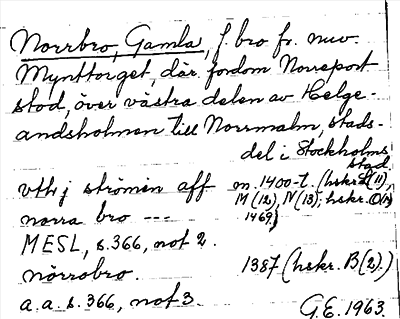 Norrbro, Gamla, f. bro fr. nuv.
Mynttorget, där fordom Norreport
stod, över västra delen av Helge-
andsholmen till Norrmalm, stads-
del i Stockholms
stad
vthj strömin aff m. 1400-t. (hskr L (11),
norra bro --- M (12), N (13); hskr. O (14)
1469)
MESL, s. 366, not 2.
nörrobro. 1387 (hskr. B (2))
a.a. s. 366, not 3. G.E. 1963.